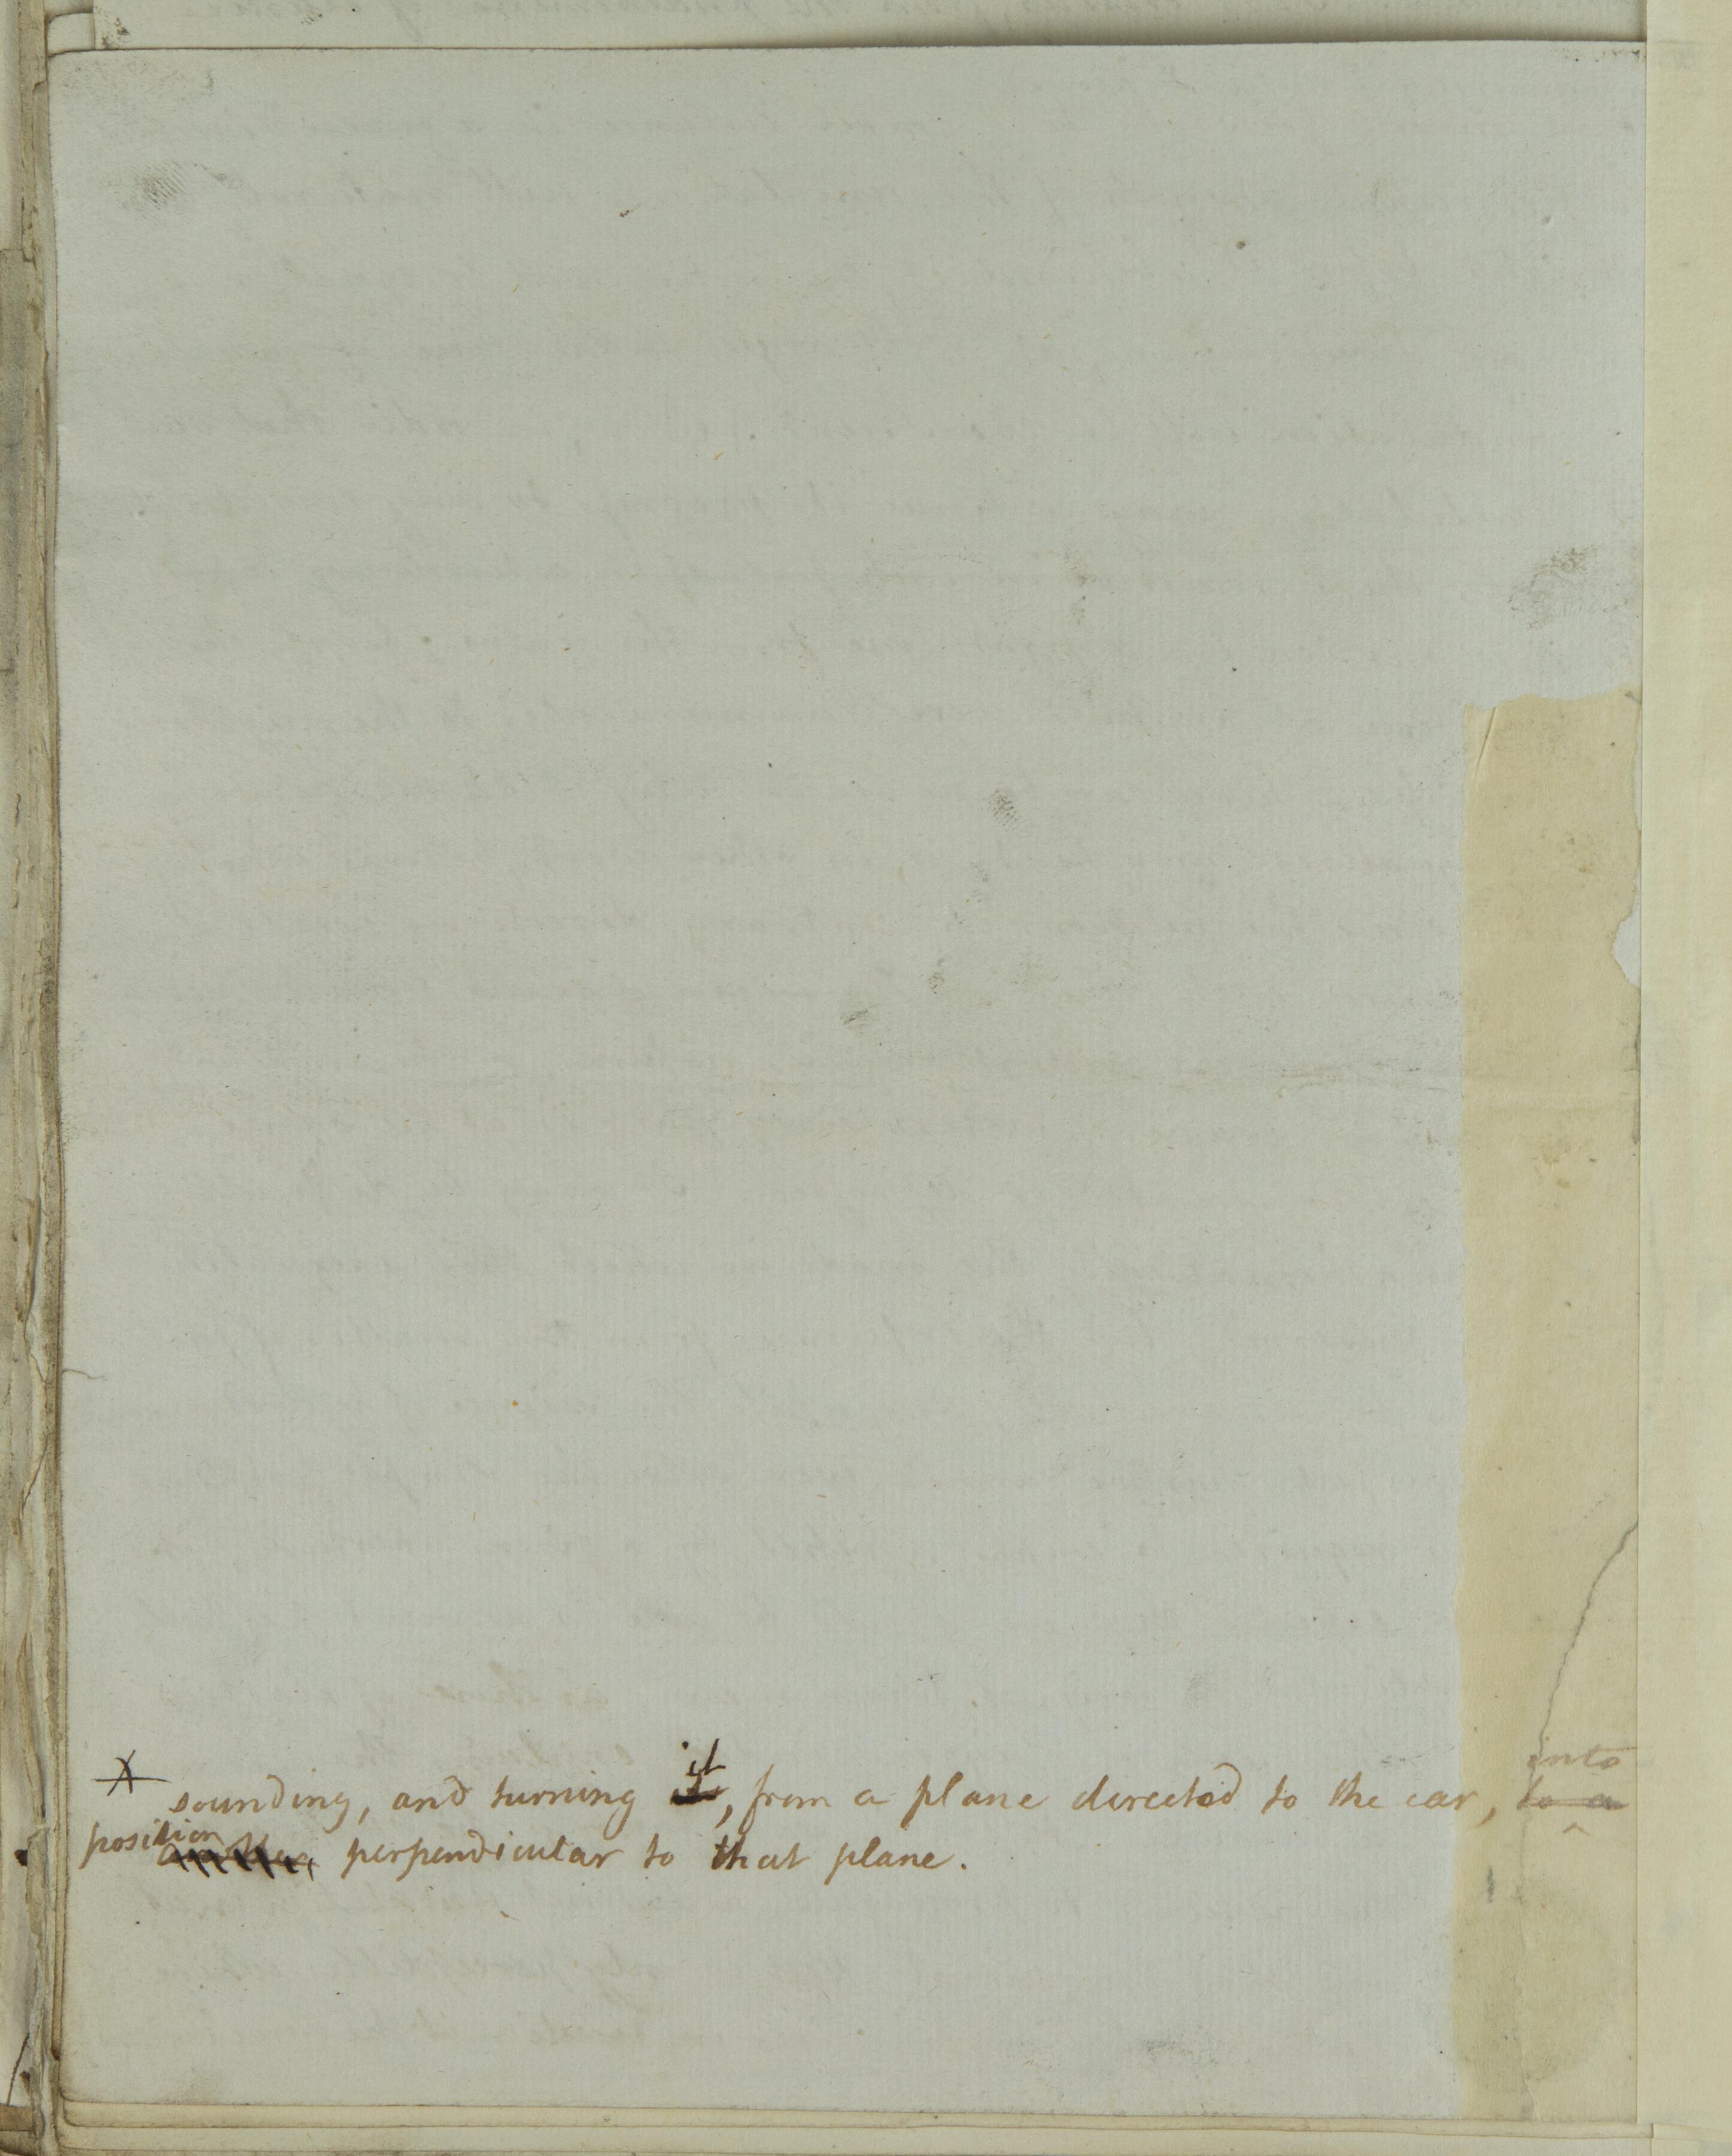 it into
X sounding, and turning it, from a plane directed to the ear, to a
position perpendicular to that plane.